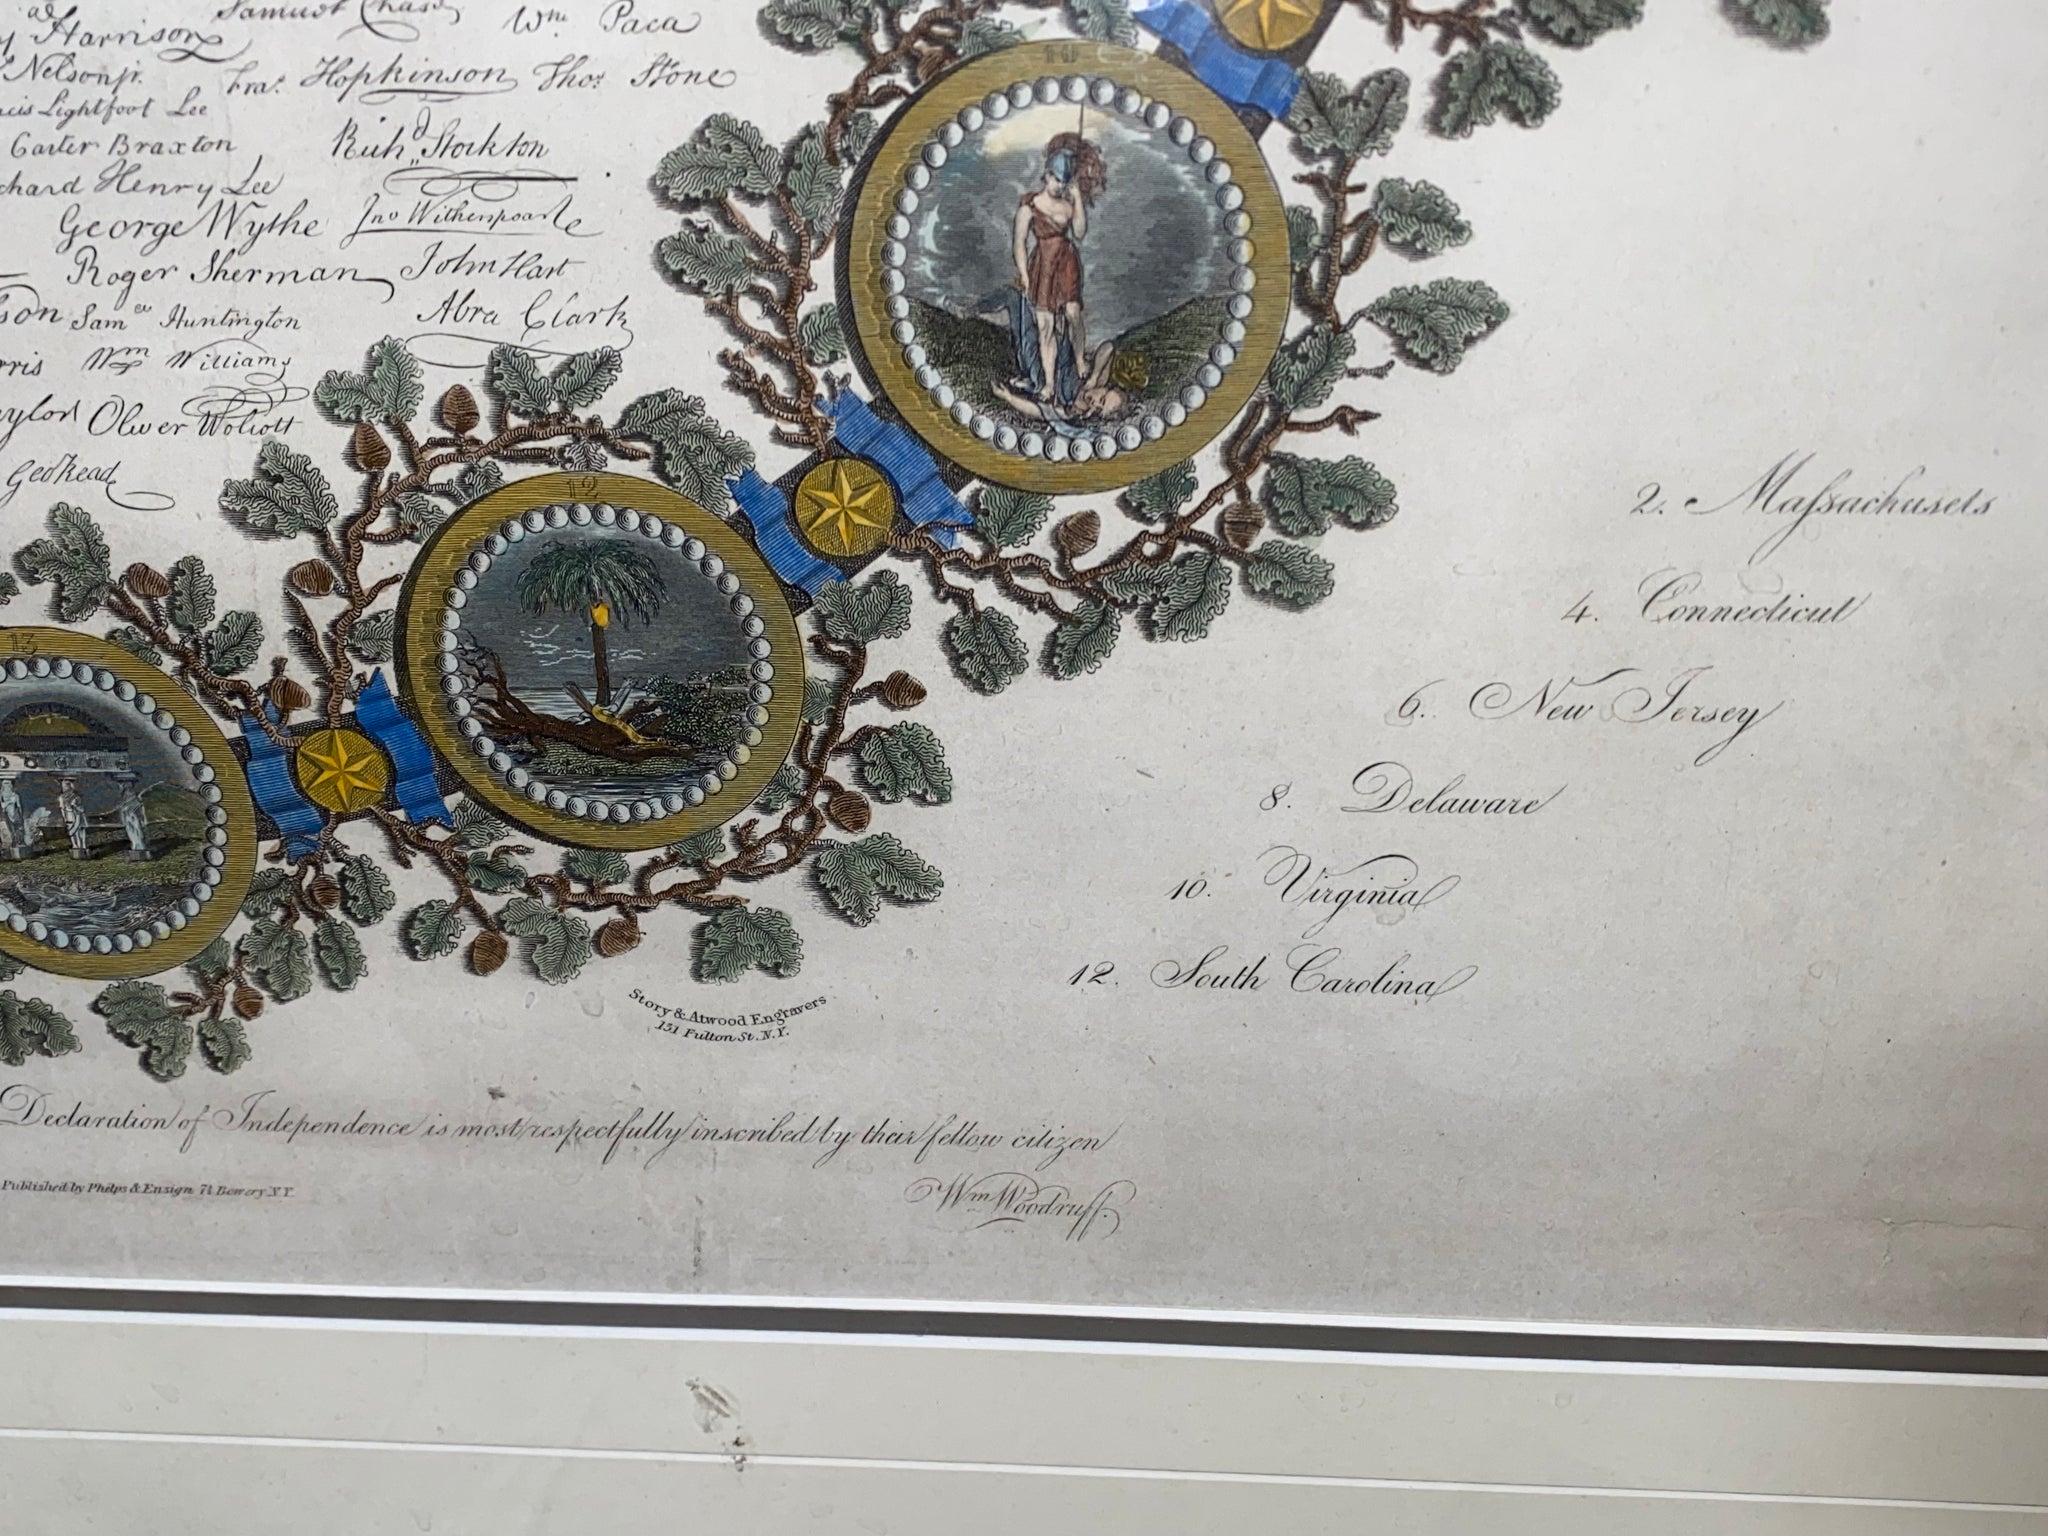 Samuel Chase Wm. Paca
Harrison
Nelson jr. Fras. Hopkinson Thos. Stone
Lightfoot Lee
Carter Braxton Richd. Stockton
Henry Lee
George Wythe Jno Witherspoon
Roger Sherman John Hart
Saml Huntington Abra Clark
Wm Williams
Oliver Wolcott
Geo Read
12
13
2. Maſsachusets
4. Connecticut
6. New Jersey
8. Delaware
10. Virginia
12. South Carolina
Story & Atwood Engravers
151 Fulton St. N.Y.
Declaration of Independence is most respectfully inscribed by their fellow citizen
Published by Phelps & Ensign 7½ Bowery N.Y.
Wm Woodruff.